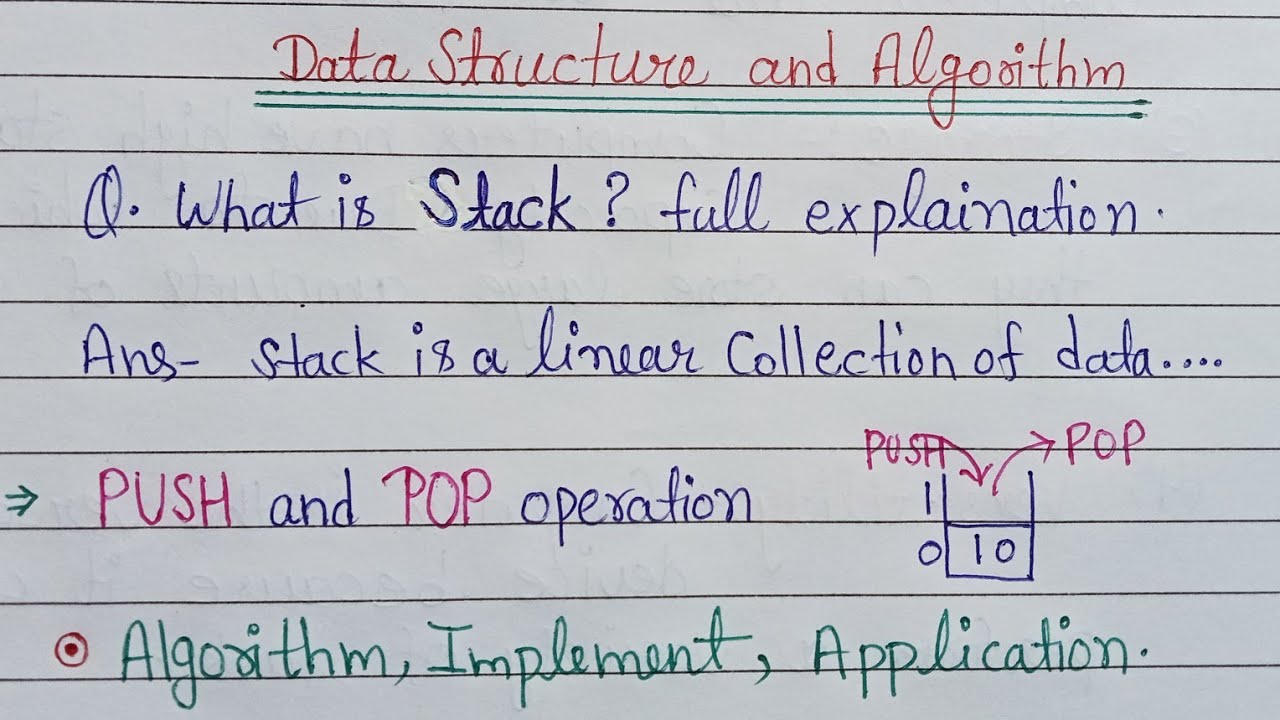 Data Structure and Algorithm
Q. What is Stack? full explaination.
Ans- Stack is a linear Collection of data....
PUSH POP
⇒ PUSH and POP operation
1
0 10
Algorithm, Implement, Application.